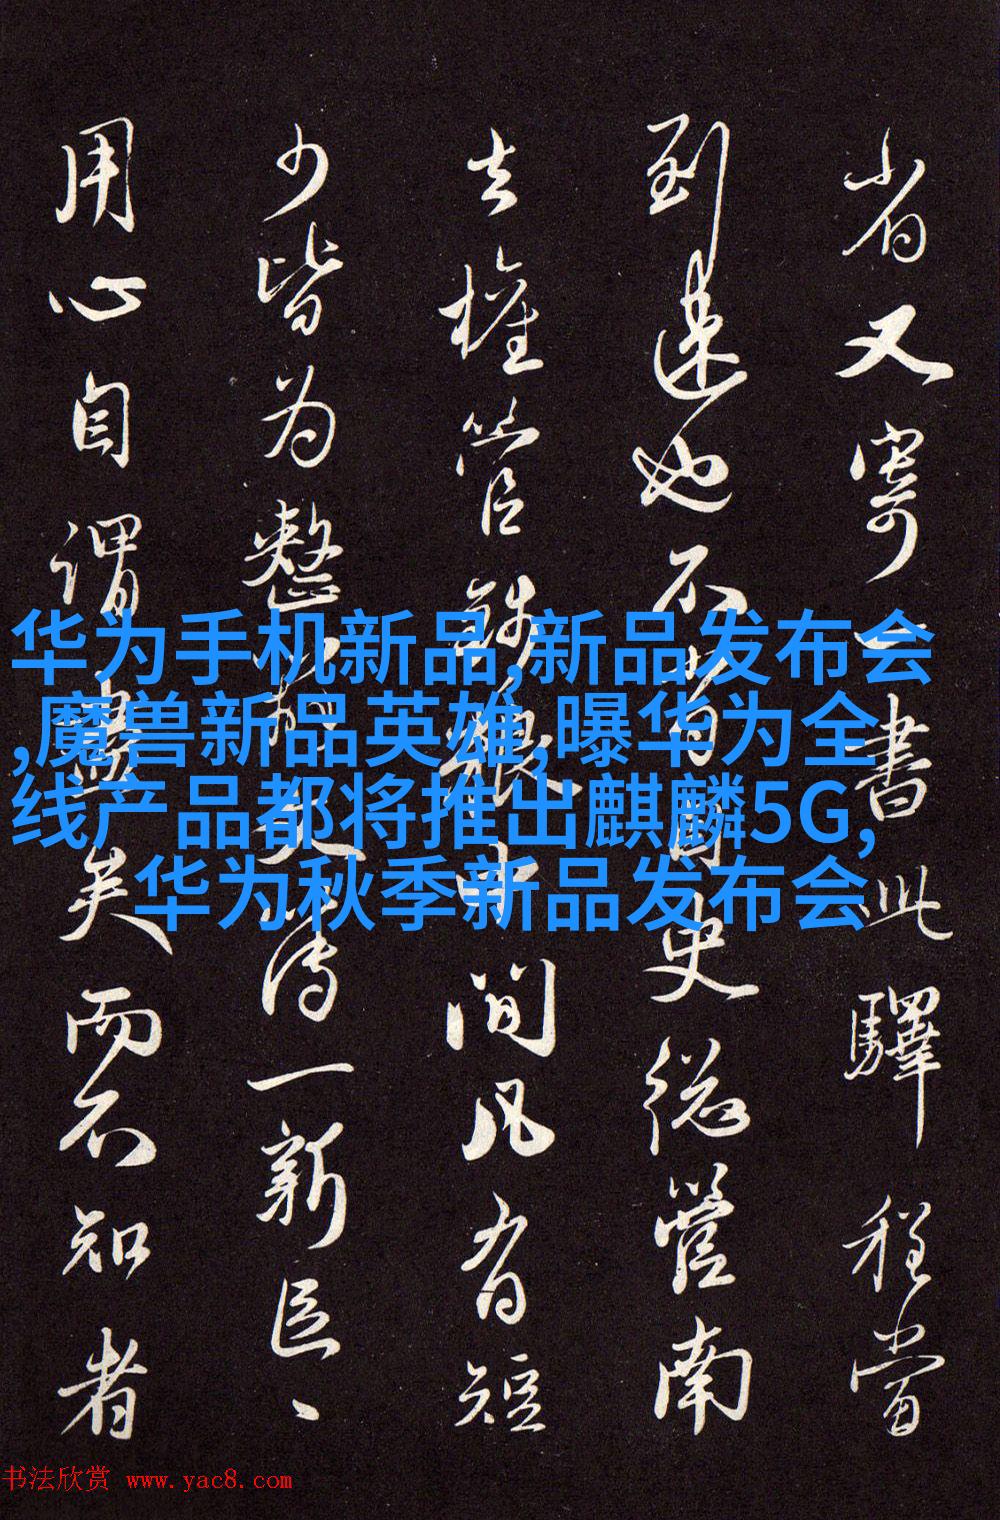 省又寄一書此驛程當
到速也不史總管南
去權管錢糧中間凡有短
少皆为整一新臣
用心自謂盡矣而不知者
华为手机新品,新品发布会
,魔兽新品英雄,曝华为全
线产品都将推出麒麟5G,
华为秋季新品发布会
书法欣赏 www.yac8.com